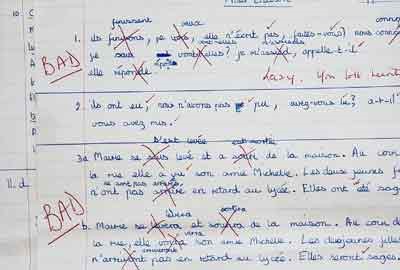 finissent veux
1. ils finissons, je vois, elle n'écrit pas, faites-vous? nous
je sais vont-elles? je m'assied, appelle-t-il
BAD
elle répondе Lazy. You both
2. ils ont eu, nous n'avons pas pu, avez-vous lu? a-t-il
vous avez mis.
s'est levée est sortie
3a Marie se suis levé et a sorti de la maison. Au cour
la rue elle a vu son amie Michelle. Les deux jeunes
ne sont pas arrivées
n'ont pas arrivé en retard au lycée. Elles ont été sag
11.d.
BAD
lèvera sortira
b. Marie se levera et sortira de la maison. Au cour d
verra
la rue, elle voyra son amie Michelle. Les deux jeunes filles
n'arrivont pas en retard au lycée. Elles seront sages.